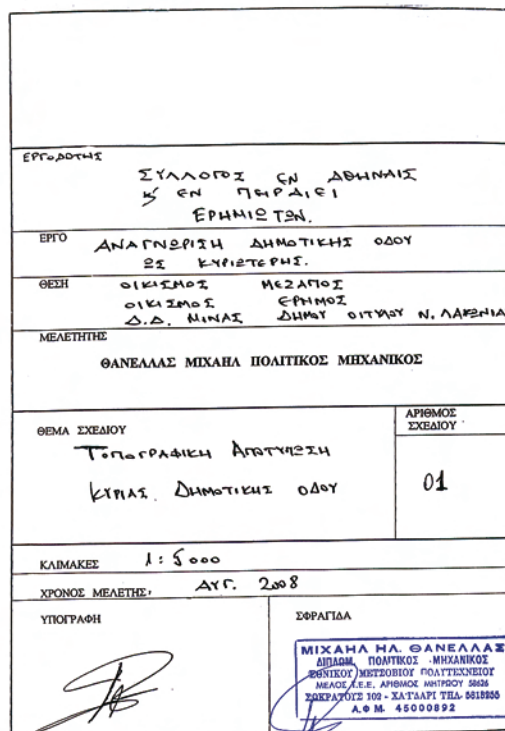 ΕΡΓΟΔΟΤΗΣ
ΣΥΛΛΟΓΟΣ ΕΝ ΑΘΗΝΑΙΣ
Κ' ΕΝ ΠΕΙΡΑΙΕΙ
ΕΡΗΜΙΩΤΩΝ.
ΕΡΓΟ ΑΝΑΓΝΩΡΙΣΗ ΔΗΜΟΤΙΚΗΣ ΟΔΟΥ
ΩΣ ΚΥΡΙΩΤΕΡΗΣ.
ΘΕΣΗ ΟΙΚΙΣΜΟΣ ΜΕΖΑΠΟΣ
ΟΙΚΙΣΜΟΣ ΕΡΗΜΟΣ
Δ.Δ. ΜΙΝΑΣ ΔΗΜΟΥ ΟΙΤΥΛΟΥ Ν. ΛΑΚΩΝΙΑ
ΜΕΛΕΤΗΤΗΣ
ΘΑΝΕΛΛΑΣ ΜΙΧΑΗΛ ΠΟΛΙΤΙΚΟΣ ΜΗΧΑΝΙΚΟΣ
ΘΕΜΑ ΣΧΕΔΙΟΥ
ΤΟΠΟΓΡΑΦΙΚΗ ΑΠΟΤΥΠΩΣΗ
ΚΥΡΙΑΣ ΔΗΜΟΤΙΚΗΣ ΟΔΟΥ
ΑΡΙΘΜΟΣ
ΣΧΕΔΙΟΥ
01
ΚΛΙΜΑΚΕΣ 1:5000
ΧΡΟΝΟΣ ΜΕΛΕΤΗΣ, ΑΥΓ. 2008
ΥΠΟΓΡΑΦΗ
ΣΦΡΑΓΙΔΑ
ΜΙΧΑΗΛ ΗΛ. ΘΑΝΕΛΛΑΣ
ΔΙΠΛΩΜ. ΠΟΛΙΤΙΚΟΣ ΜΗΧΑΝΙΚΟΣ
ΕΘΝΙΚΟΥ ΜΕΤΣΟΒΙΟΥ ΠΟΛΥΤΕΧΝΕΙΟΥ
ΜΕΛΟΣ Τ.Ε.Ε. ΑΡΙΘΜΟΣ ΜΗΤΡΩΟΥ 58626
ΣΩΚΡΑΤΟΥΣ 102 - ΧΑΪΔΑΡΙ ΤΗΛ. 5818255
Α.Φ.Μ. 45000892